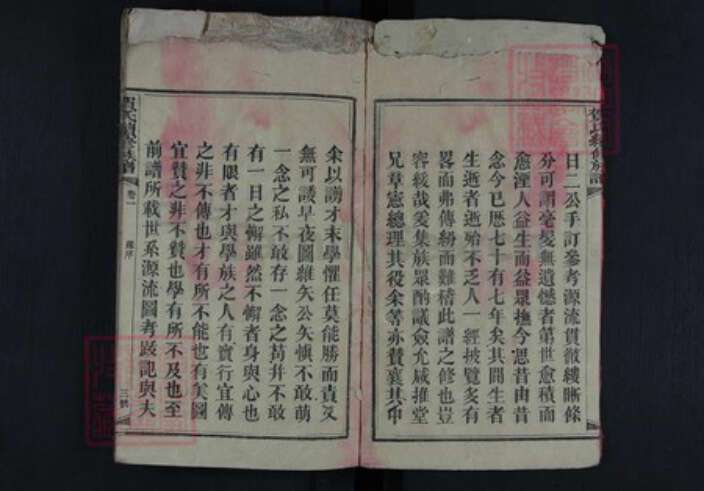 日二公手訂參考源流貫徹縷晰條
分可謂毫髮無遺憾者第世愈積而
愈湮人益生而益眾撫今思昔由昔
念今已歷七十有七年矣其間生者
生逝者逝殆不乏人一經披覽多有
畧而弗傳紛而難稽此譜之修也豈
容緩哉爰集族眾酌議僉允咸推堂
兄章憲總理其役余等亦贊襄其中
余以譾才末學懼任莫能勝而責又
無可諉早夜圖維矢公矢慎不敢萌
一念之私不敢存一念之苟幷不敢
有一日之懈雖然不懈者身與心也
有限者才與學族之人有實行宜傳
之非不傳也才有所不能也有美圖
宜贊之非不贊也學有所不及也至
前譜所載世系源流圖考跋記與夫
氏續修族譜
卷一